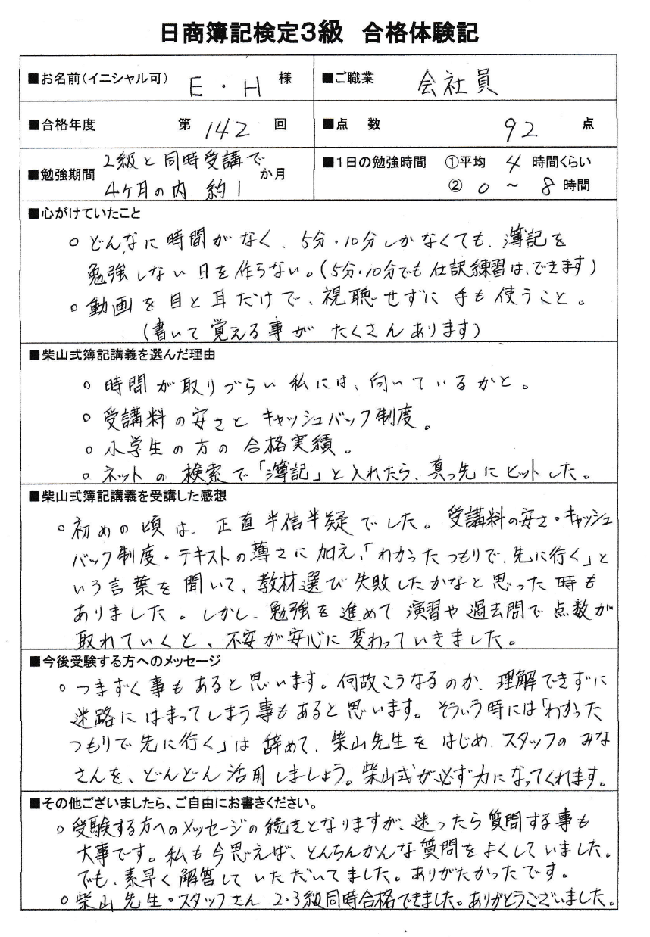 日商簿記検定3級 合格体験記
■お名前(イニシャル可) E・H 様 ■ご職業 会社員
■合格年度 第 142 回 ■点 数 92 点
■勉強期間 2級と同時受講で 4ケ月の内 約1 か月 ■1日の勉強時間 ①平均 4 時間くらい
② 0 ～ 8 時間
■心がけていたこと
○どんなに時間がなく、5分・10分しかなくても、簿記を
勉強しない日を作らない。(5分・10分でも仕訳練習は、できます)
○動画を目と耳だけで、視聴せずに手も使うこと。
(書いて覚える事がたくさんあります)
■柴山式簿記講義を選んだ理由
○時間が取りづらい私には、向いているかと。
○受講料の安さとキャッシュバック制度。
○小学生の方の合格実績。
○ネットの検索で「簿記」と入れたら、真っ先にヒットした。
■柴山式簿記講義を受講した感想
○初めの頃は、正直半信半疑でした。受講料の安さ・キャッシュ
バック制度・テキストの薄さに加え、「わかったつもりで、先に行く」と
いう言葉を聞いて、教材選び失敗したかなと思った時も
ありました。しかし、勉強を進めて演習や過去問で点数が
取れていくと、不安が安心に変わっていきました。
■今後受験する方へのメッセージ
○つまずく事もあると思います。何故こうなるのか、理解できずに
迷路にはまってしまう事もあると思います。そういう時には「わかった
つもりで先に行く」は辞めて、柴山先生をはじめ、スタッフのみな
さんを、どんどん活用しましょう。柴山式が必ず力になってくれます。
■その他ございましたら、ご自由にお書きください。
○受験する方へのメッセージの続きとなりますが、迷ったら質問する事も
大事です。私も今思えば、とんちんかんな質問をよくしていました。
でも、素早く解答していただいてました。ありがたかったです。
○柴山先生・スタッフさん 2・3級同時合格できました。ありがとうございました。